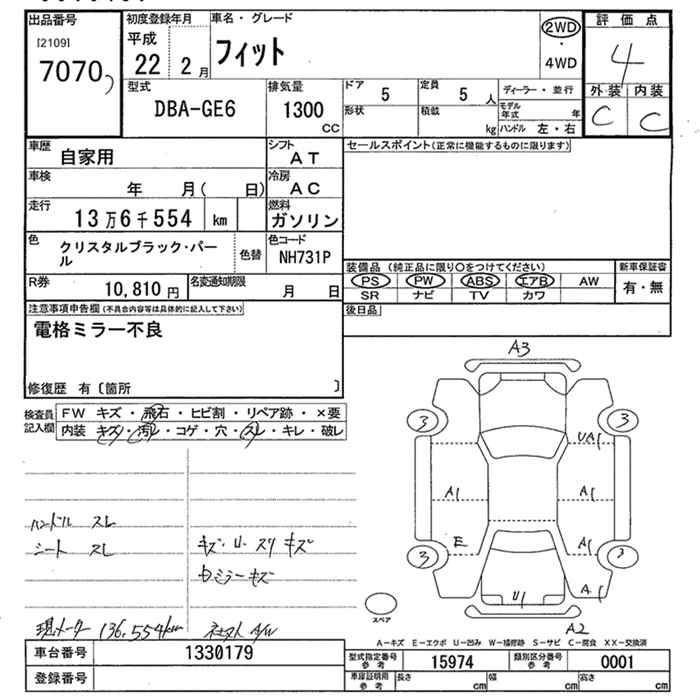 出品番号
[2109]
7070
初度登録年月
平成
22 2月
車名・グレード
フィット
2WD
・
4WD
評価点
4
外装 内装
C C
型式
DBA-GE6
排気量
1300
CC
ドア 5
定員 5 人
形状
積載 kg
ディーラー・並行
モデル年式 年
ハンドル 左・右
車歴 自家用
シフト AT
車検 年 月( 日)
冷房 AC
走行 13万6千554 km
燃料 ガソリン
色 クリスタルブラック・パール
色替
色コード NH731P
R券 10,810円
名変通知期限 月 日
セールスポイント(正常に機能するものに限ります)
装備品 (純正品に限り○をつけてください)
PS PW ABS エアB AW
SR ナビ TV カワ
新車保証書
有・無
後日品
注意事項申告欄(不具合内容等は具体的に記入して下さい)
電格ミラー不良
修復歴 有〔箇所 〕
検査員記入欄
FW キズ・飛石・ヒビ割・リペア跡・×要
内装 キズ・汚レ・コゲ・穴・スレ・キレ・破レ
ハンドル スレ
シート スレ
キズ・U・スリキズ
ミラーキズ
現メーター 136,554km
A/W
A3
3 3
UA1
A1 A1
E A1
3 3
A1
U1
A2
スペア
A-キズ E-エクボ U-凹み W-補修跡 S-サビ C-腐食 XX-交換済
車台番号 1330179
登録番号
型式指定番号 参考 15974
類別区分番号 参考 0001
車庫証明用 参考 長さ cm 幅 cm 高さ cm